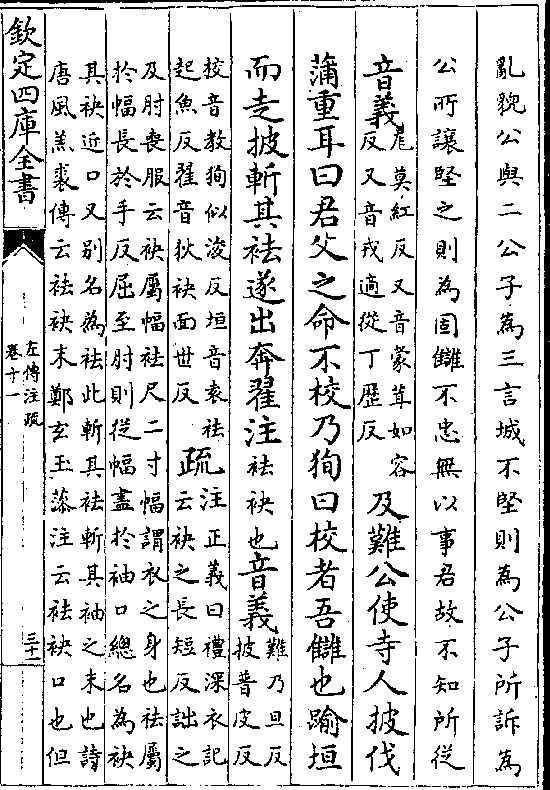 亂貌公與二公子為三言城不堅則為公子所訴為
公所讓堅之則為固讎不忠無以事君故不知所從
音義尨莫紅反又音蒙茸如容
反又音戎適從丁歷反
及難公使寺人披伐
蒲重耳曰君父之命不校乃狥曰校者吾讎也踰垣
而走披斬其袪遂出奔翟注袪袂也音義難乃旦反
披普皮反
校音教狥似浚反垣音袁袪
起魚反翟音狄袂面世反
疏注正義曰禮深衣記
云袂之長短反詘之
及肘喪服云袂屬幅袪尺二寸幅謂衣之身也袪屬
於幅長於手反屈至肘則從幅盡於袖口總名為袂
其袂近口又别名為袪此斬其袪斬其袖之末也詩
唐風羔裘傳云袪袂末鄭玄玉藻注云袪袂口也但
欽定四庫全書
左傳注疏
卷十一
三十一